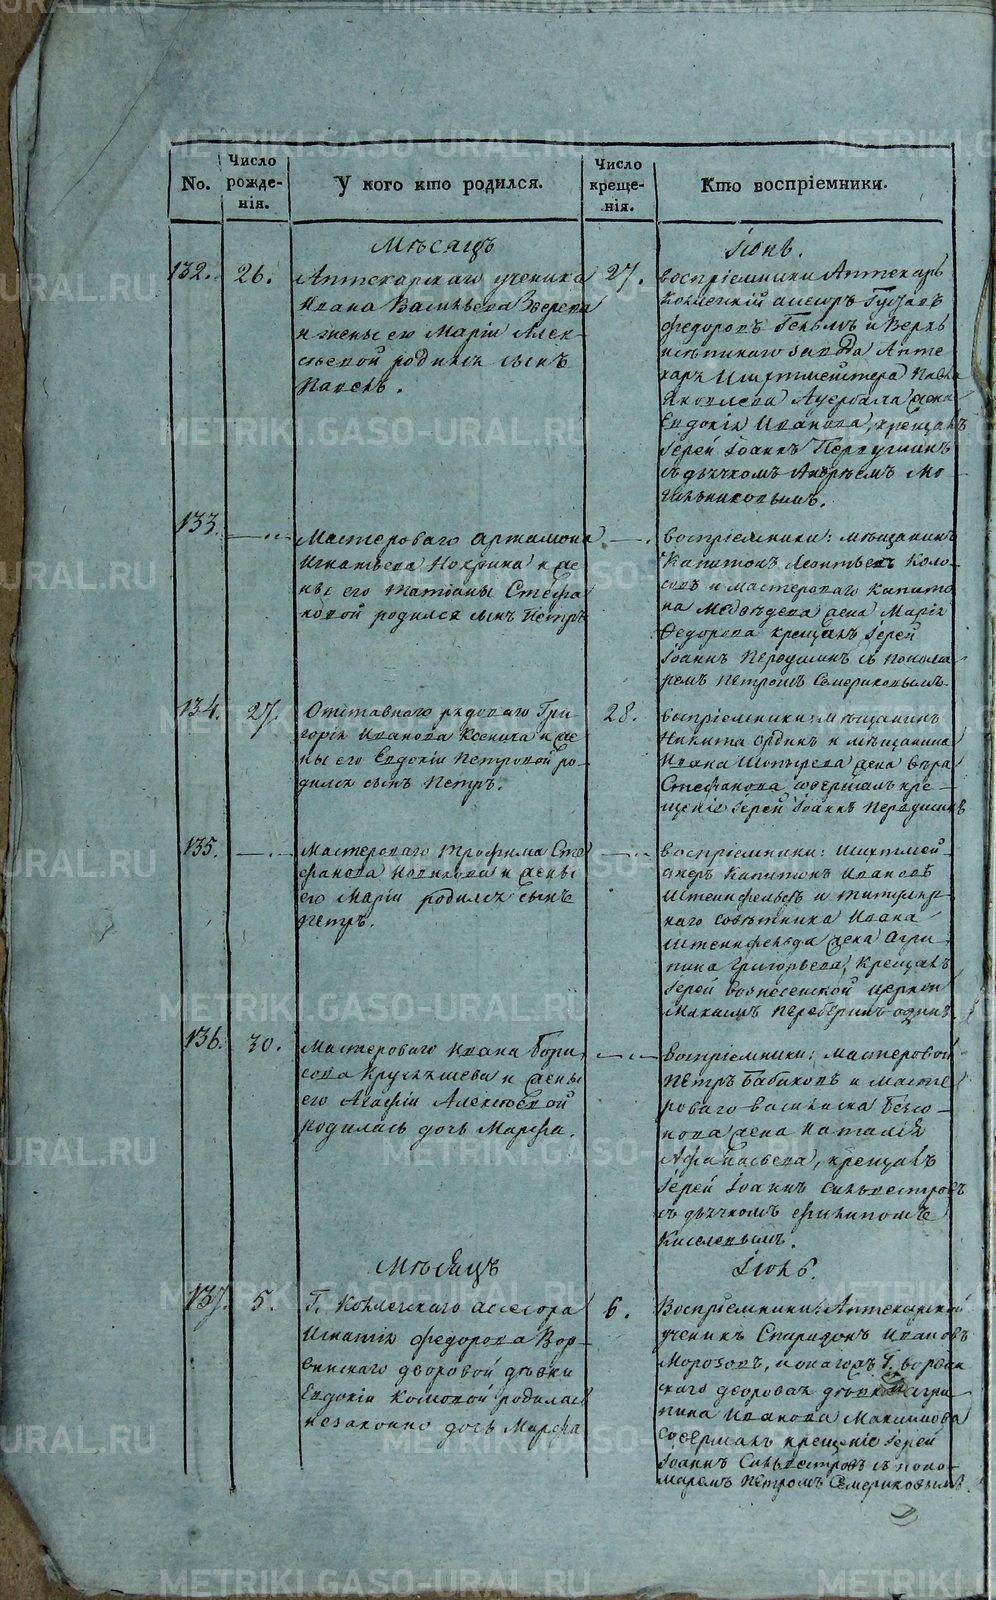 No.
Число рожде-нія.
У кого кто родился.
Число креще-нія.
Кто воспріемники.
Мѣсяцъ
Іюнь.
132.
26.
Аптекарскаго ученика
Ивана Васильева Зверева
и жены его Маріи Алек-
сѣевой родился сынъ
Павелъ.
27.
воспріемники Аптекарь
Колежскій асесоръ Густавъ
Федоровъ и Верхъ
завода Апте
каря Шихтмейстера Павла
Яковлева жена
Евдокія Иванова, крещалъ
Іерей Іоаннъ Первушинъ
съ дьячкомъ Андреемъ Мо
гильниковымъ.
133.
Мастероваго Артамона
Игнатьева и же
ны его Татіаны Стефа
новой родился сынъ Петръ
воспріемники: мѣщанинъ
Капитонъ Леонтьевъ Коло-
совъ и мастероваго Капито
на Медвѣдева жена Марія
Федорова крещалъ Іерей
Іоаннъ Первушинъ съ понома
ремъ Петромъ Семериковымъ.
134.
27.
Отставнаго рядоваго Гри
горія Иванова и же
ны его Евдокіи Петровой ро-
дился сынъ Петръ.
28.
воспріемники: мѣщанинъ
Никита и мѣщанина
Ивана жена вѣра
Стефанова совершалъ кре-
щеніе Іерей Іоаннъ Первушинъ
135.
Мастероваго Трофима Сте
фанова Новикова и жены
его Маріи родился сынъ
Петръ.
воспріемники: Шихтмей-
стеръ Капитонъ Ивановъ
Штейнфельдъ и титуляр-
наго совѣтника Ивана
Штейнфельда жена Агри-
пина Григорьева, крещалъ
Іерей вознесенской церкви
Максимъ одинъ.
136.
30.
Мастероваго Ивана Бори
сова и жены
его Агафіи Алексѣевой
родилась дочь Марфа.
Воспріемники: мастеровой
Петръ Бабиковъ и масте
роваго василья
жена Наталія
Афанасьева, крещалъ
Іерей Іоаннъ Сильвестровъ
съ дьячкомъ филипомъ
Киселевымъ.
Мѣсяцъ
Іюль.
137.
5.
Г. Колежскаго асесора
Игнатія федорова Вор-
винскаго дворовой дѣвки
Евдокіи родилась
незаконно дочь Марфа
6.
Воспріемники: Аптекарской
ученикъ Спиридонъ Ивановъ
Морозовъ, и онагожъ Г.
скаго дворовая дѣвка Агри-
пина Иванова Максимова
совершалъ крещеніе Іерей
Іоаннъ Сильвестровъ съ поно-
маремъ Петромъ Семериковымъ.
METRIKI.GASO-URAL.RU